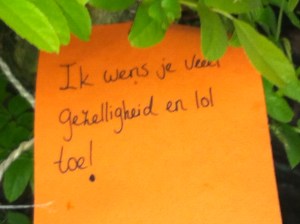 Ik wens je veel
gezelligheid en lol
toe!